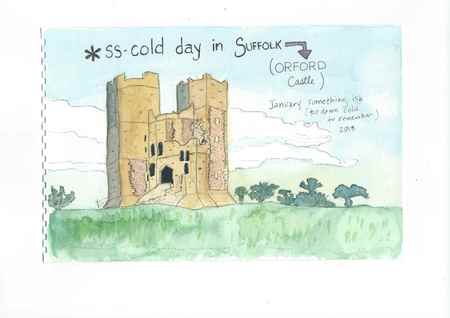 *ss-cold day in SUFFOLK
(ORFORD
Castle)
January something, ish
(too damn cold
to remember)